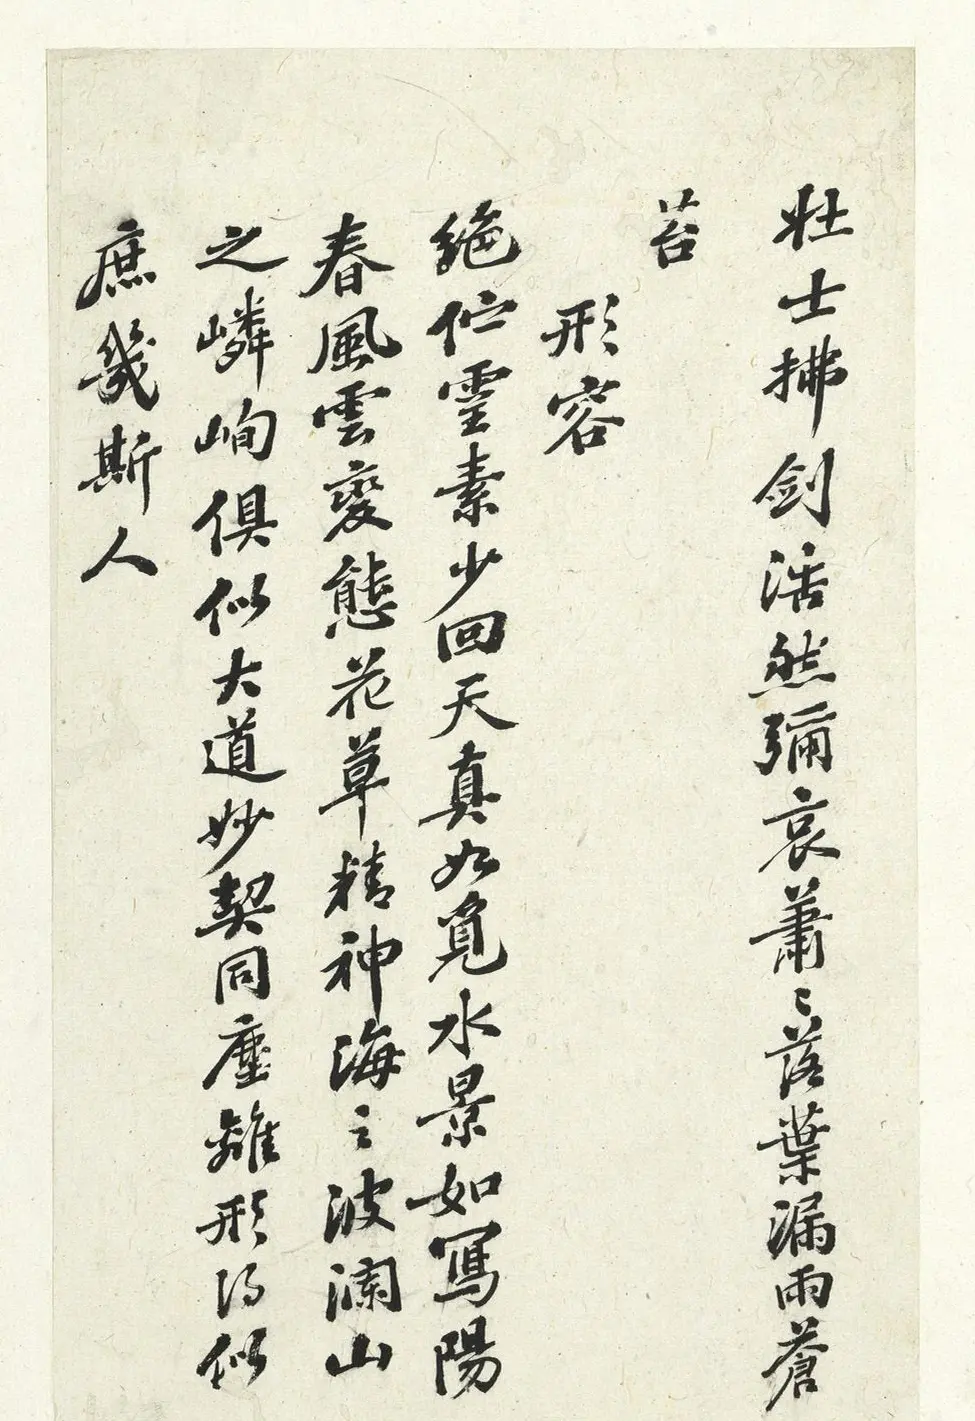 壯士拂劍浩然彌哀蕭〻落葉漏雨蒼
苔
形容
絕佇靈素少回天真如覓水景如寫陽
春風雲變態花草精神海之波瀾山
之嶙峋俱似大道妙契同塵離形得似
庶幾斯人